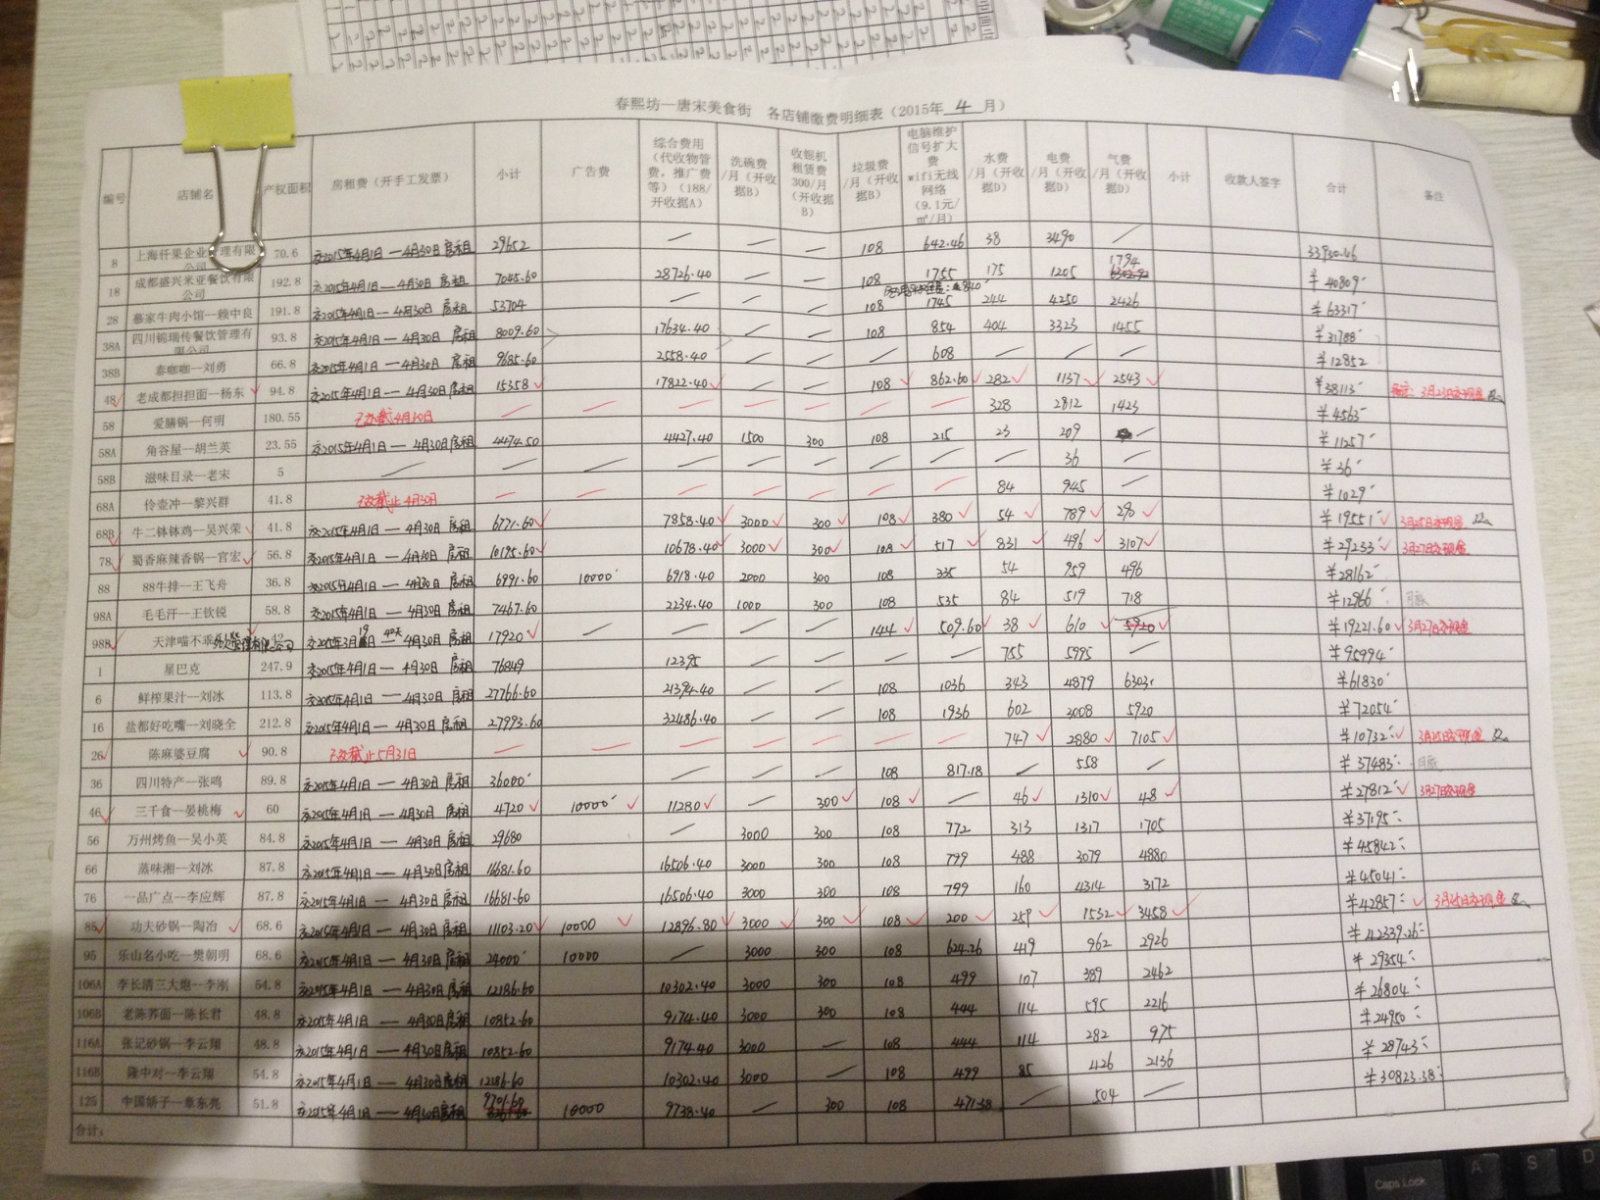 春熙坊一唐宋美食街 各店铺缴费明细表（2015年 4 月）
编号 店铺名 产权面积 房租费（开手工发票） 小计 广告费 综合费用（代收物管费，推广费等）（188/开收据A） 洗碗费/月（开收据B） 收银机租赁费300/月（开收据B） 垃圾费/月（开收据B） 电脑维护信号扩大费wifi无线网络（9.1元/㎡/月） 水费/月（开收据D） 电费/月（开收据D） 气费/月（开收据D） 小计 收款人签字 合计 备注
8 上海仟果企业管理有限公司 70.6 交2015年4月1日—4月30日房租 29652 — — — 108 642.46 38 3490 — 33930.46
18 成都盛兴米亚餐饮有限公司 192.8 交2015年4月1日—4月30日房租 7045.60 28726.40 — — 108 1755 175 1205 1794 ¥40809
28 慕家牛肉小馆—赖中良 191.8 交2015年4月1日—4月30日房租 53704 — — — 108 1745 244 4250 2426 ¥63317
38A 四川锦瑞传餐饮管理有限公司 93.8 交2015年4月1日—4月30日房租 8009.60 17634.40 — — 108 854 404 3323 1455 ¥31788
38B 泰咖咖—刘勇 66.8 交2015年4月1日—4月30日房租 9685.60 2558.40 — — — 608 — — — ¥12852
48 老成都担担面—杨东 94.8 交2015年4月1日—4月30日房租 15358 17822.40 — — 108 862.60 282 1137 2543 ¥38113 3月23日交现金
58 爱膳锅—何明 180.55 已交截4月30日 — — — — — — — 328 2812 1423 ¥4563
58A 角谷屋—胡兰英 23.55 交2015年4月1日—4月30日房租 4474.50 4427.40 1500 300 108 215 23 209 — ¥11257
58B 滋味目录—老宋 5 — — — — — — — — — 36 — ¥36
68A 伶壶冲—黎兴群 41.8 已交截止4月30日 — — — — — — — 84 945 — ¥1029
68B 牛二钵钵鸡—吴兴荣 41.8 交2015年4月1日—4月30日房租 6771.60 7858.40 3000 300 108 380 54 789 290 ¥19551 3月25日交现金
78 蜀香麻辣香锅—官宏 56.8 交2015年4月1日—4月30日房租 10195.60 10678.40 3000 300 108 517 831 496 3107 ¥29233 3月27日交现金
88 88牛排—王飞舟 36.8 交2015年4月1日—4月30日房租 6991.60 10000 6918.40 2000 300 108 335 54 959 496 ¥28162
98A 毛毛汗—王钦锐 58.8 交2015年4月1日—4月30日房租 7467.60 2234.40 1000 300 108 535 84 519 718 ¥12966
98B 天津喵不乖 交2015年3月19日—4月30日房租 17920 — — — — 144 509.60 38 610 ¥19221.60 3月27日交现金
1 星巴克 247.9 交2015年4月1日—4月30日房租 76849 12395 — — — — 755 5995 — ¥95994
6 鲜榨果汁—刘冰 113.8 交2015年4月1日—4月30日房租 27766.60 21394.40 — — 108 1036 343 4879 6303 ¥61830
16 盐都好吃嘴—刘晓全 212.8 交2015年4月1日—4月30日房租 27993.60 32486.40 — — 108 1936 602 3008 5920 ¥72054
26 陈麻婆豆腐 90.8 已交截止5月31日 — — — — — — — 747 2880 7105 ¥10732 3月25日交现金
36 四川特产—张鸣 89.8 交2015年4月1日—4月30日房租 36000 — — — 108 817.18 — 558 — ¥37483
46 三千食—晏桃梅 60 交2015年4月1日—4月30日房租 4720 10000 11280 — 300 108 — 46 1310 48 ¥27812 3月27日交现金
56 万州烤鱼—吴小英 84.8 交2015年4月1日—4月30日房租 29680 — 3000 300 108 772 313 1317 1705 ¥37195
66 蒸味湘—刘冰 87.8 交2015年4月1日—4月30日房租 16681.60 16506.40 3000 300 108 799 488 3079 4880 ¥45842
76 一品广点—李应辉 87.8 交2015年4月1日—4月30日房租 16681.60 16506.40 3000 300 108 799 160 4314 3172 ¥45041
86 功夫砂锅—陶冶 68.6 交2015年4月1日—4月30日房租 11103.20 10000 12896.80 3000 300 108 200 259 1532 3458 ¥42857 3月25日交现金
96 乐山名小吃—樊朝明 68.6 交2015年4月1日—4月30日房租 24000 10000 — 3000 300 108 624.26 419 962 2926 ¥42339.26
106A 李长清三大炮—李刚 54.8 交2015年4月1日—4月30日房租 12186.60 10302.40 3000 300 108 499 107 389 2462 ¥29354
106B 老陈荞面—陈长君 48.8 交2015年4月1日—4月30日房租 10852.60 9174.40 3000 300 108 444 114 595 2216 ¥26804
116A 张记砂锅—李云翔 48.8 交2015年4月1日—4月30日房租 10852.60 9174.40 3000 — 108 444 114 282 975 ¥24950
116B 隆中对—李云翔 54.8 交2015年4月1日—4月30日房租 12186.60 10302.40 3000 — 108 499 85 426 2136 ¥28743
125 中国娇子—章东亮 51.8 交2015年4月1日—4月30日房租 9701.60 10000 9738.40 — 300 108 471.38 — 504 — ¥30823.38
合计：
Caps Lock
A
S
D